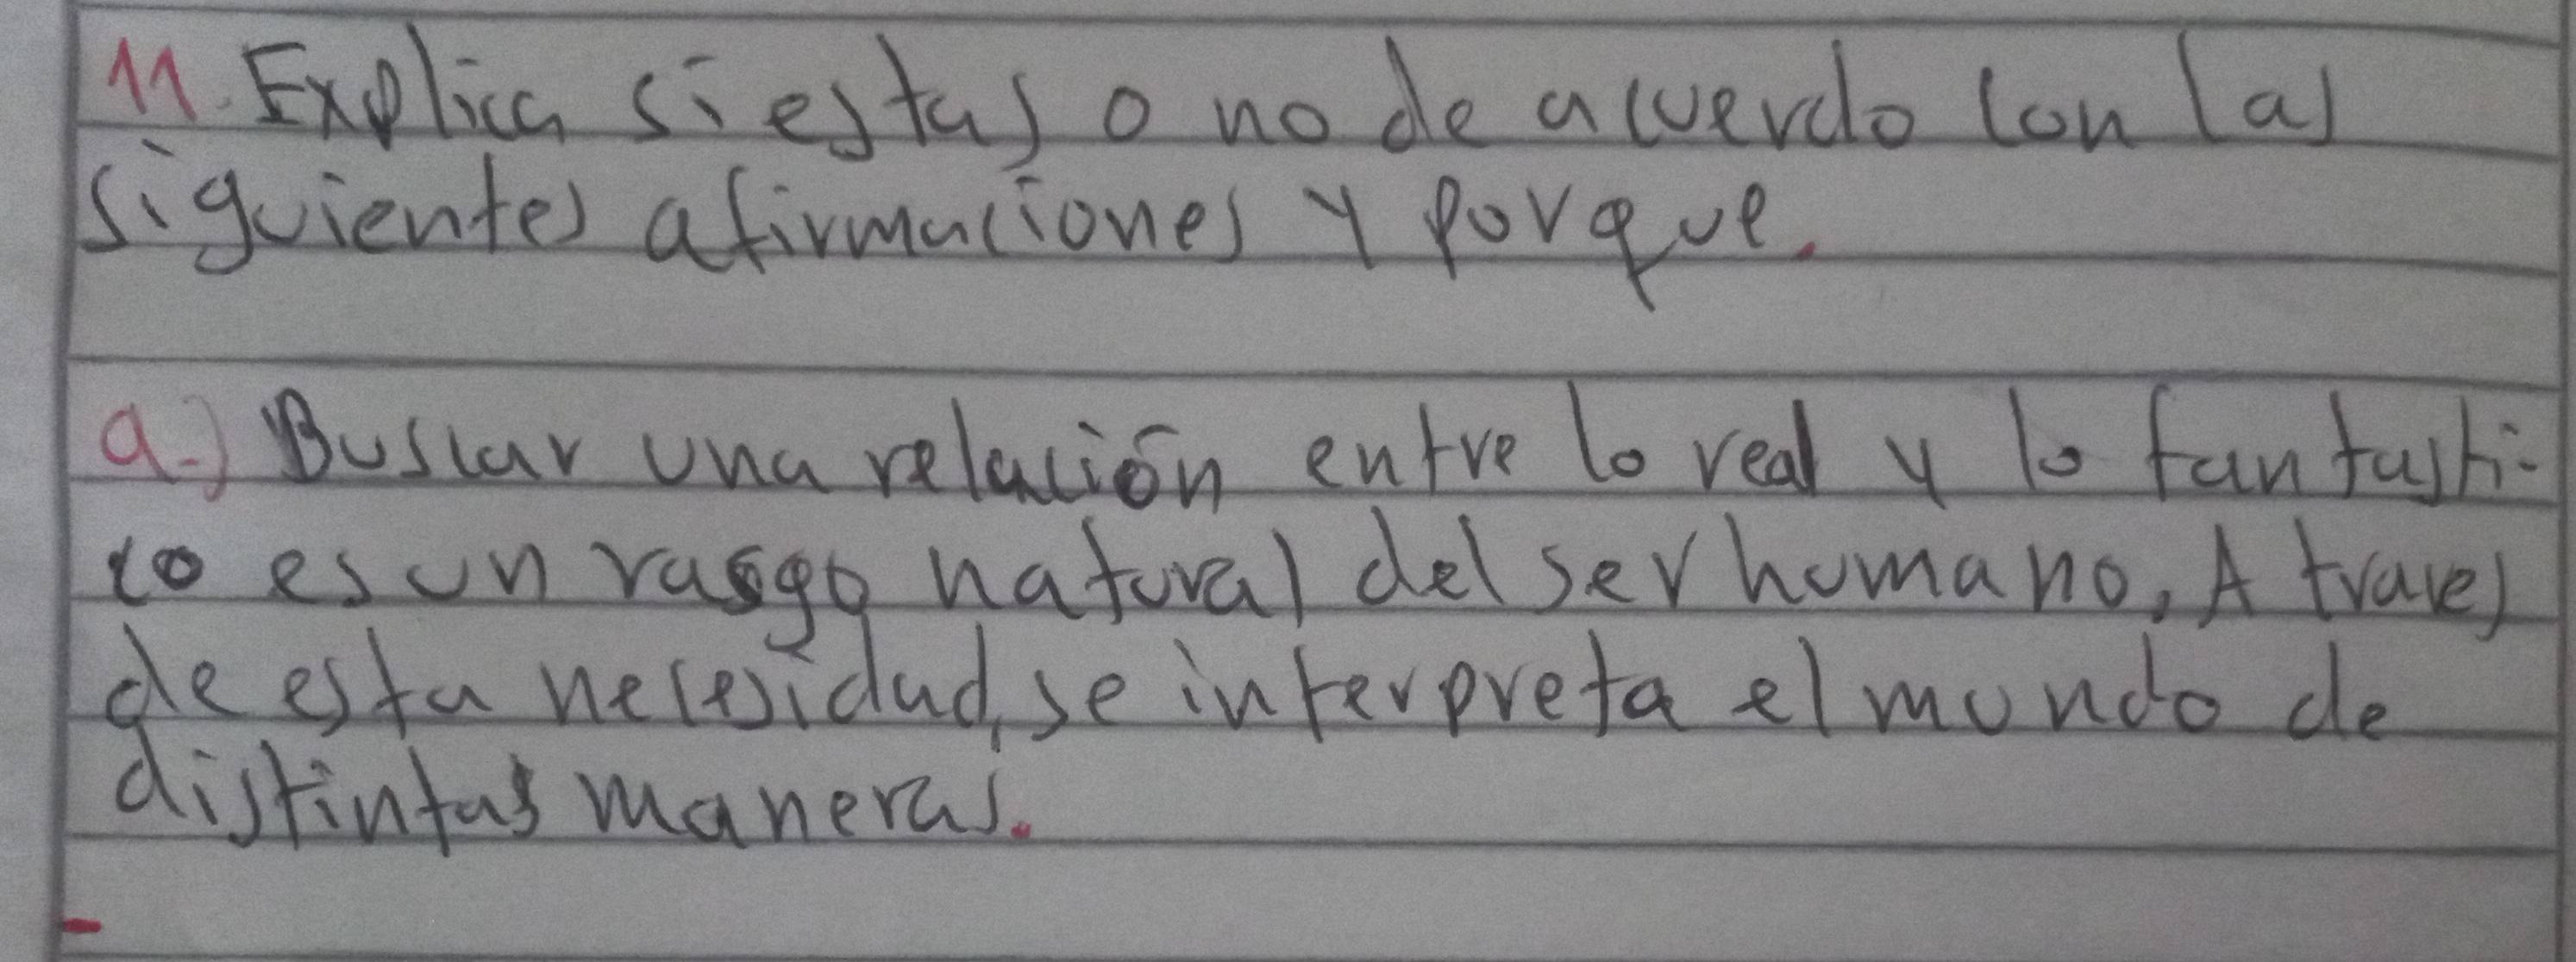 11. Explica si estas o no de acuerdo con las
siguientes afirmaciones y porque.
a.) Buscar una relación entre lo real y lo fantasti-
co es un rasgo natural del ser humano, A traves
de esta necesidad, se interpreta el mundo de
distintas maneras.